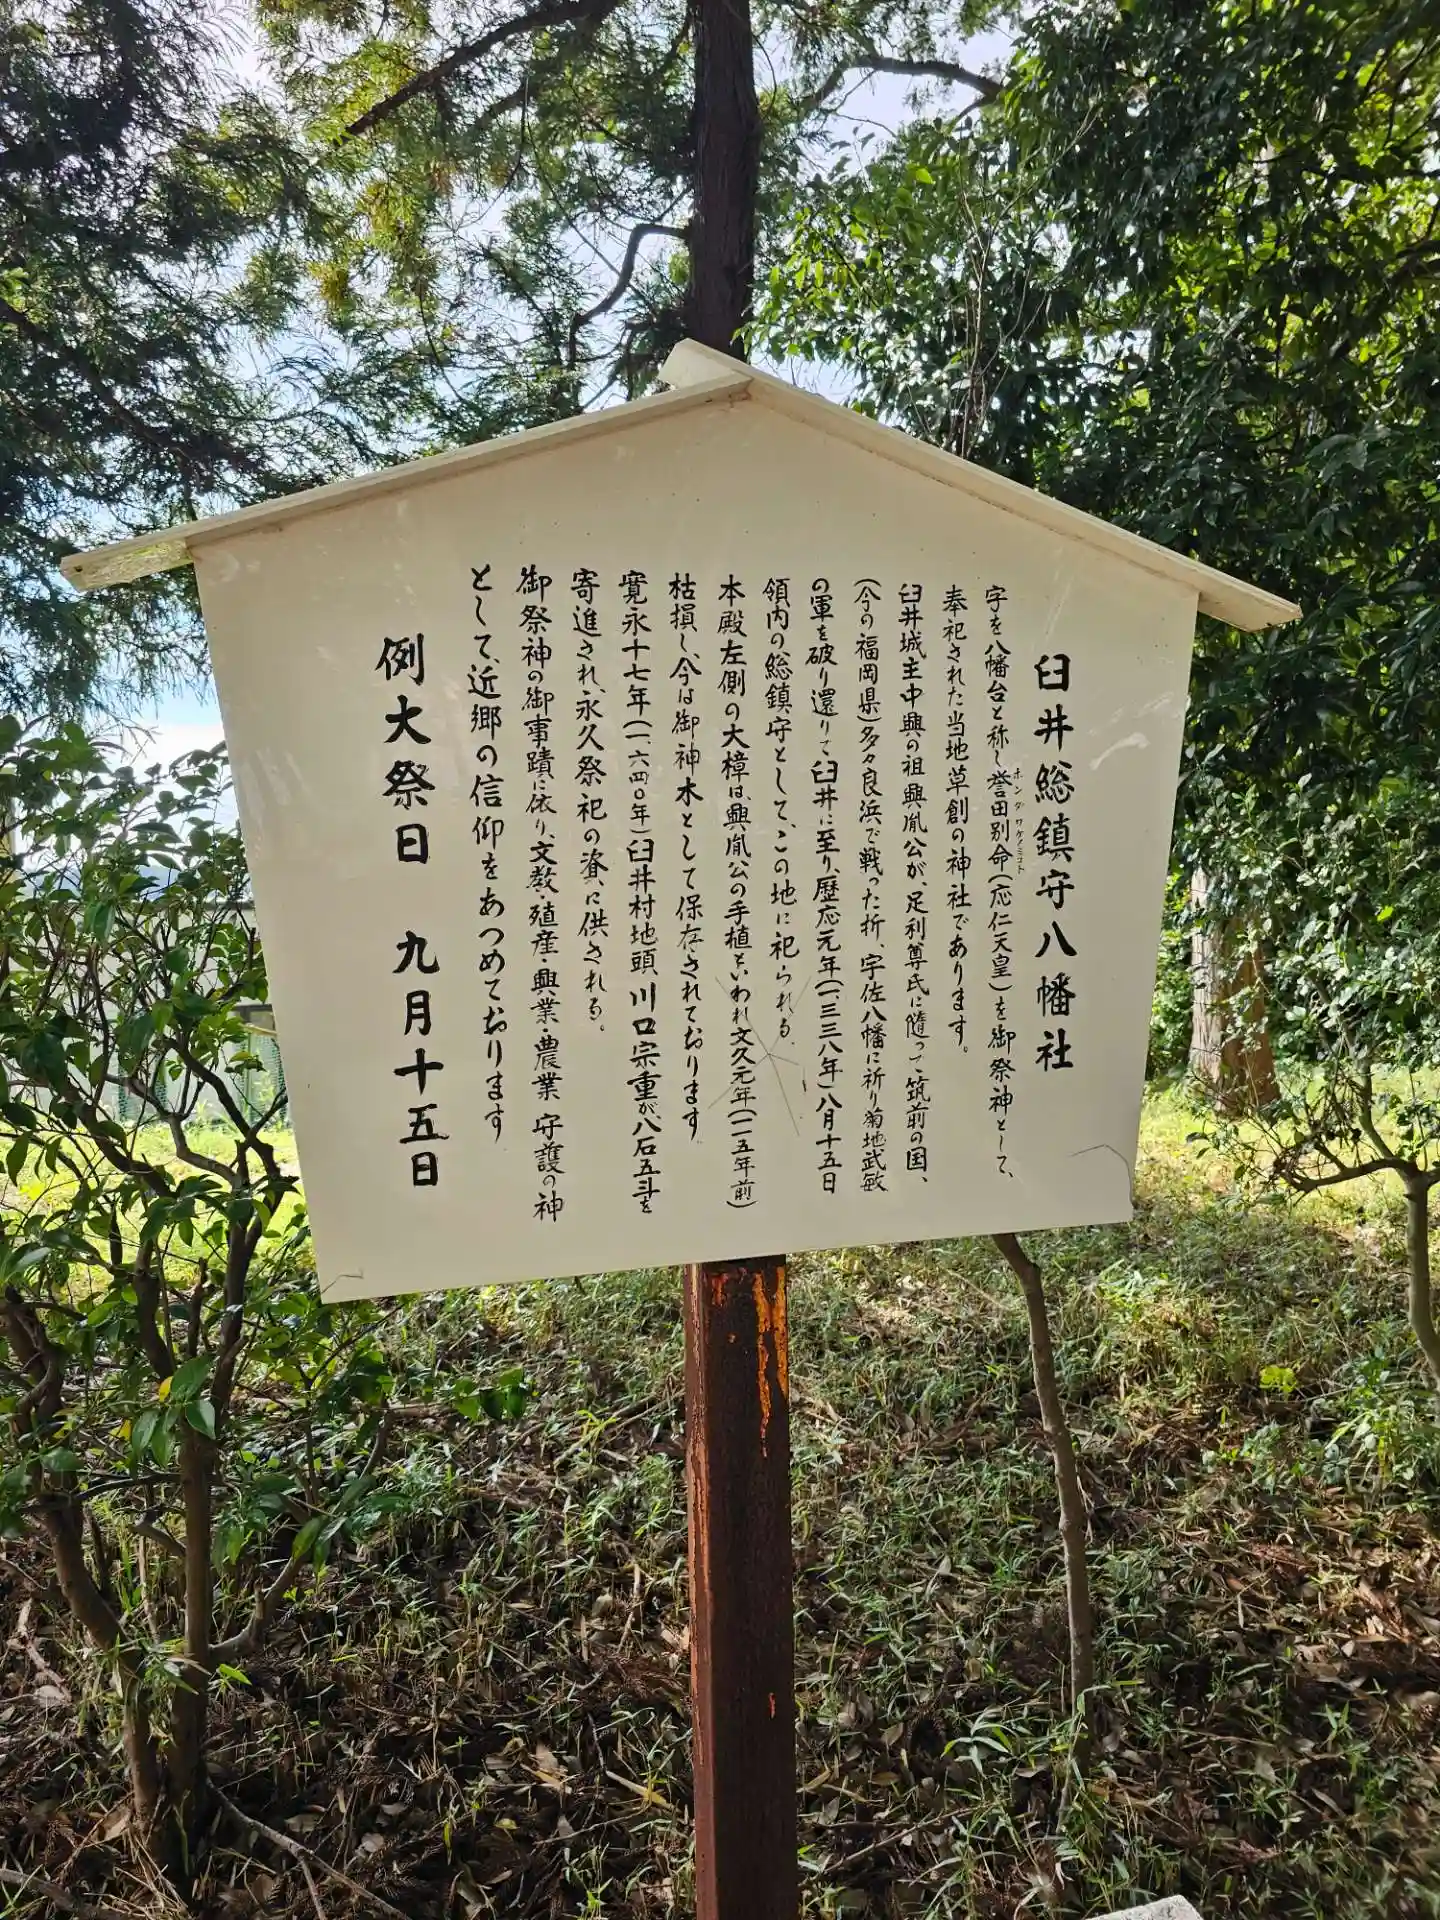 臼井総鎮守八幡社
字を八幡台と称し誉田別命(応仁天皇)を御祭神として、
ホンダワケノミコト
奉祀された当地草創の神社であります。
臼井城主中興の祖興胤公が、足利尊氏に随って筑前の国、
(今の福岡県)多々良浜で戦った折、宇佐八幡に祈り菊地武敏
の軍を破り還りて臼井に至り、歴応元年(一三三八年)八月十五日
領内の総鎮守として、この地に祀られる。
本殿左側の大樟は、興胤公の手植といわれ文久元年(一一五年前)
枯損し、今は御神木として保存されております。
寛永十七年(一、六四〇年)臼井村地頭、川口宗重が、八石五斗を
寄進され、永久祭祀の資に供される。
御祭神の御事蹟に依り、文教・殖産・興業・農業 守護の神
として、近郷の信仰をあつめております
例大祭日 九月十五日